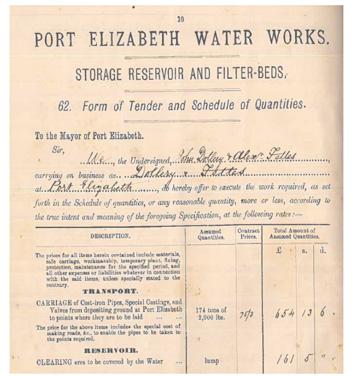 10
PORT ELIZABETH WATER WORKS.
STORAGE RESERVOIR AND FILTER-BEDS,
62. Form of Tender and Schedule of Quantities.
To the Mayor of Port Elizabeth.
Sir,
We, the Undersigned, Wm Dollery & Alexr Fettes
carrying on business as Dollery & Fettes
at Port Elizabeth, do hereby offer to execute the work required, as set
forth in the Schedule of quantities, or any reasonable quantity, more or less, according to
the true intent and meaning of the foregoing Specification, at the following rates:—
DESCRIPTION. Assumed Quantities. Contract Prices. Total Amount of Assumed Quantities.
£ s. d.
The prices for all items herein contained include materials,
safe carriage, workmanship, temporary plant, fixing,
protection, maintenance for the specified period, and
all other expenses or liabilities whatever in connection
with the said items, unless specially stated to the
contrary.
TRANSPORT.
CARRIAGE of Cast-iron Pipes, Special Castings, and
Valves from depositing ground at Port Elizabeth
to points where they are to be laid ... ... 174 tons of 2,000 lbs. 75/3 654 13 6
The price for the above items includes the special cost of
making roads, &c., to enable the pipes to be taken to
the points required.
RESERVOIR.
CLEARING area to be covered by the Water ... lump 161 5 "